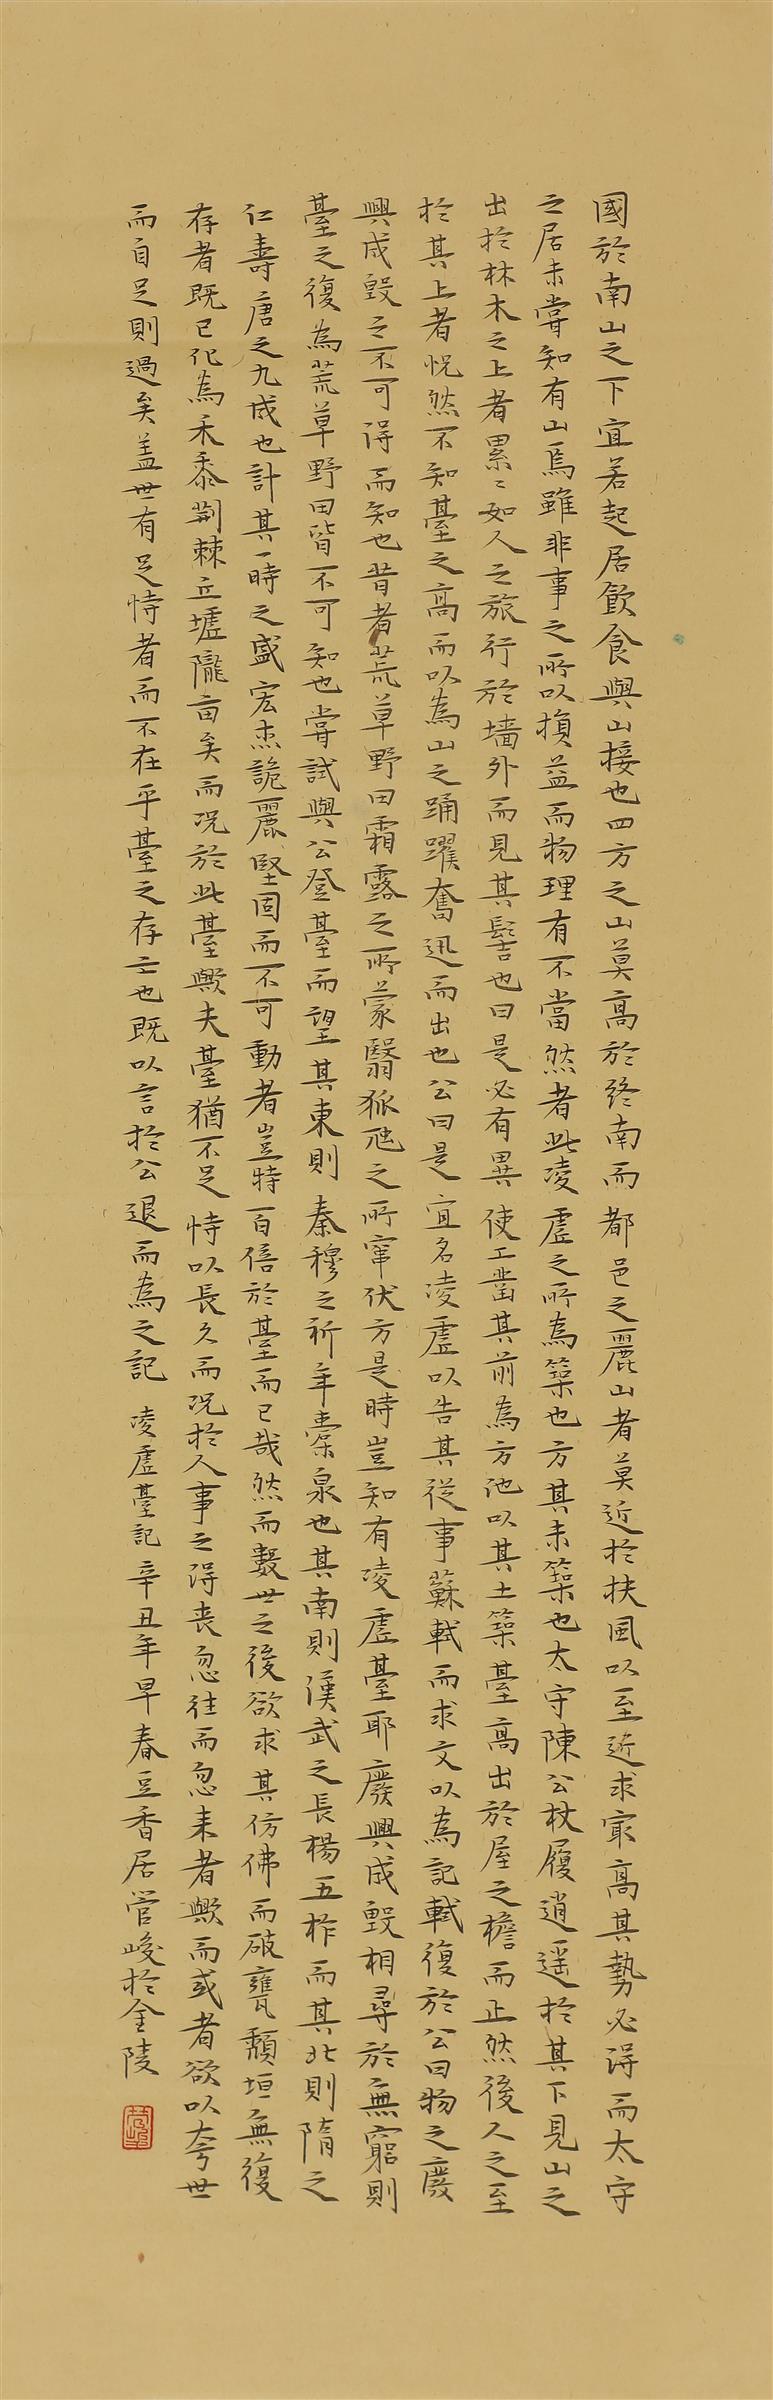 國於南山之下宜若起居飲食與山接也四方之山莫高於終南而都邑之麗山者莫近於扶風以至近求最高其勢必得而太守
之居未嘗知有山焉雖非事之所以損益而物理有不當然者此凌虛之所為築也方其未築也太守陳公杖履逍遥於其下見山之
出於林木之上者累〻如人之旅行於墻外而見其髻也曰是必有異使工鑿其前為方池以其土築臺高出於屋之檐而止然後人之至
於其上者恍然不知臺之高而以為山之踊躍奮迅而出也公曰是宜名凌虛以告其從事蘇軾而求文以為記軾復於公曰物之廢
興成毀之不可得而知也昔者荒草野田霜露之所蒙翳狐虺之所竄伏方是時豈知有凌虛臺耶廢興成毀相尋於無窮則
臺之復為荒草野田皆不可知也嘗試與公登臺而望其東則秦穆之祈年橐泉也其南則漢武之長楊五柞而其北則隋之
仁壽唐之九成也計其一時之盛宏杰詭麗堅固而不可動者豈特百倍於臺而已哉然而數世之後欲求其仿佛而破甕頹垣無復
存者既已化為禾黍荆棘丘墟隴亩矣而況於此臺歟夫臺猶不足恃以長久而況於人事之得丧忽往而忽来者歟而或者欲以夸世
而自足則過矣盖世有足恃者而不在乎臺之存亡也既以言於公退而為之記 凌虛臺記 辛丑年早春豆香居管峻於金陵